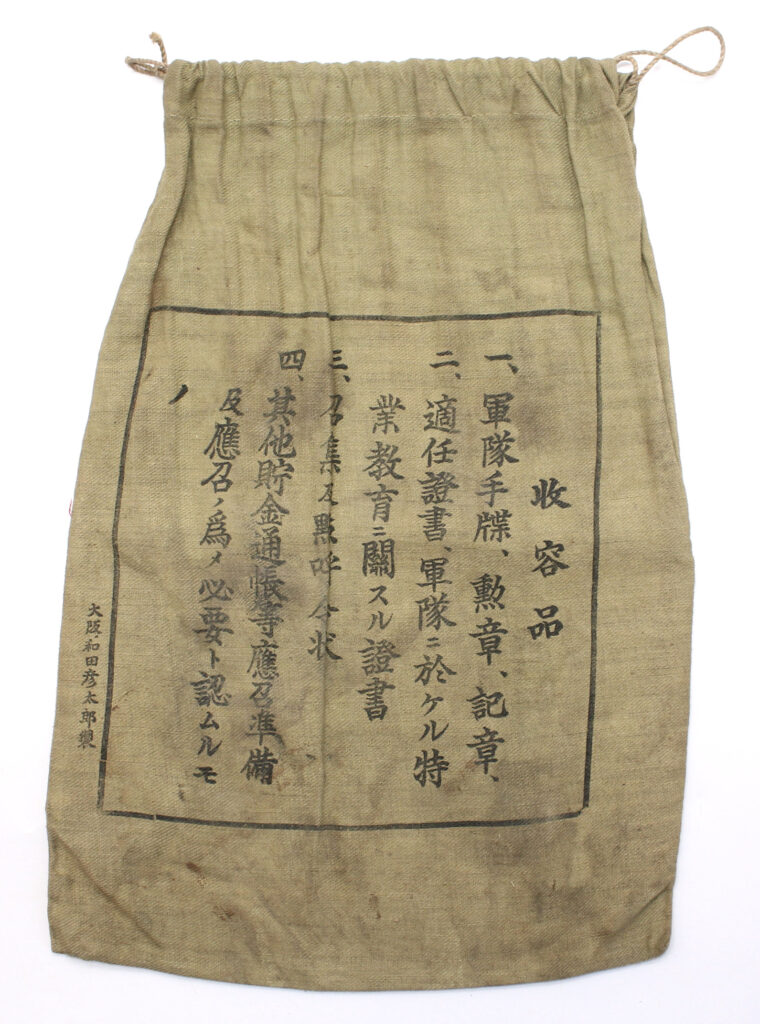 收容品
一、軍隊手牒、勲章、記章、
二、適任證書、軍隊ニ於ケル特
業教育ニ關スル證書
三、召集及點呼令状
四、其他貯金通帳等應召準備
及應召ノ爲メ必要ト認ムルモ
ノ
大阪和田彦太郎製